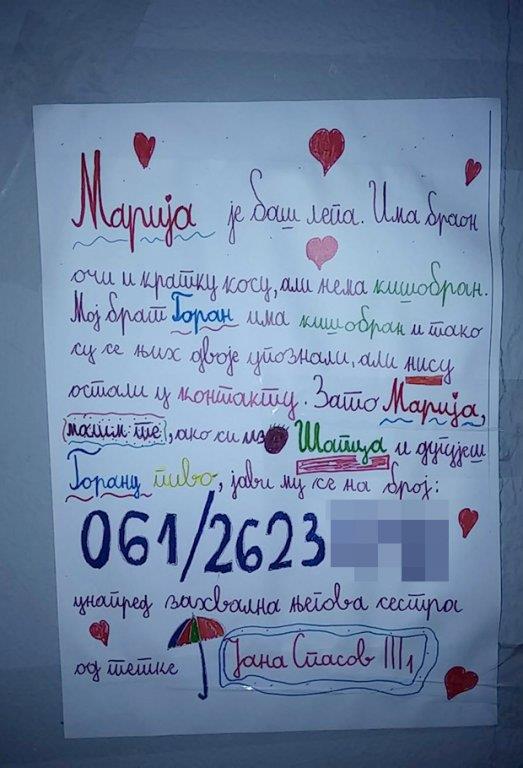 Марија је баш лепа. Има браон
очи и кратку косу, али нема кишобран.
Мој брат Горан има кишобран и тако
су се њих двоје упознали, али нису
остали у контакту. Зато Марија,
молим те, ако си из Шапца и дугујеш
Горану пиво, јави му се на број:
061/2623
унапред захвална његова сестра
од тетке Јана Спасов III1